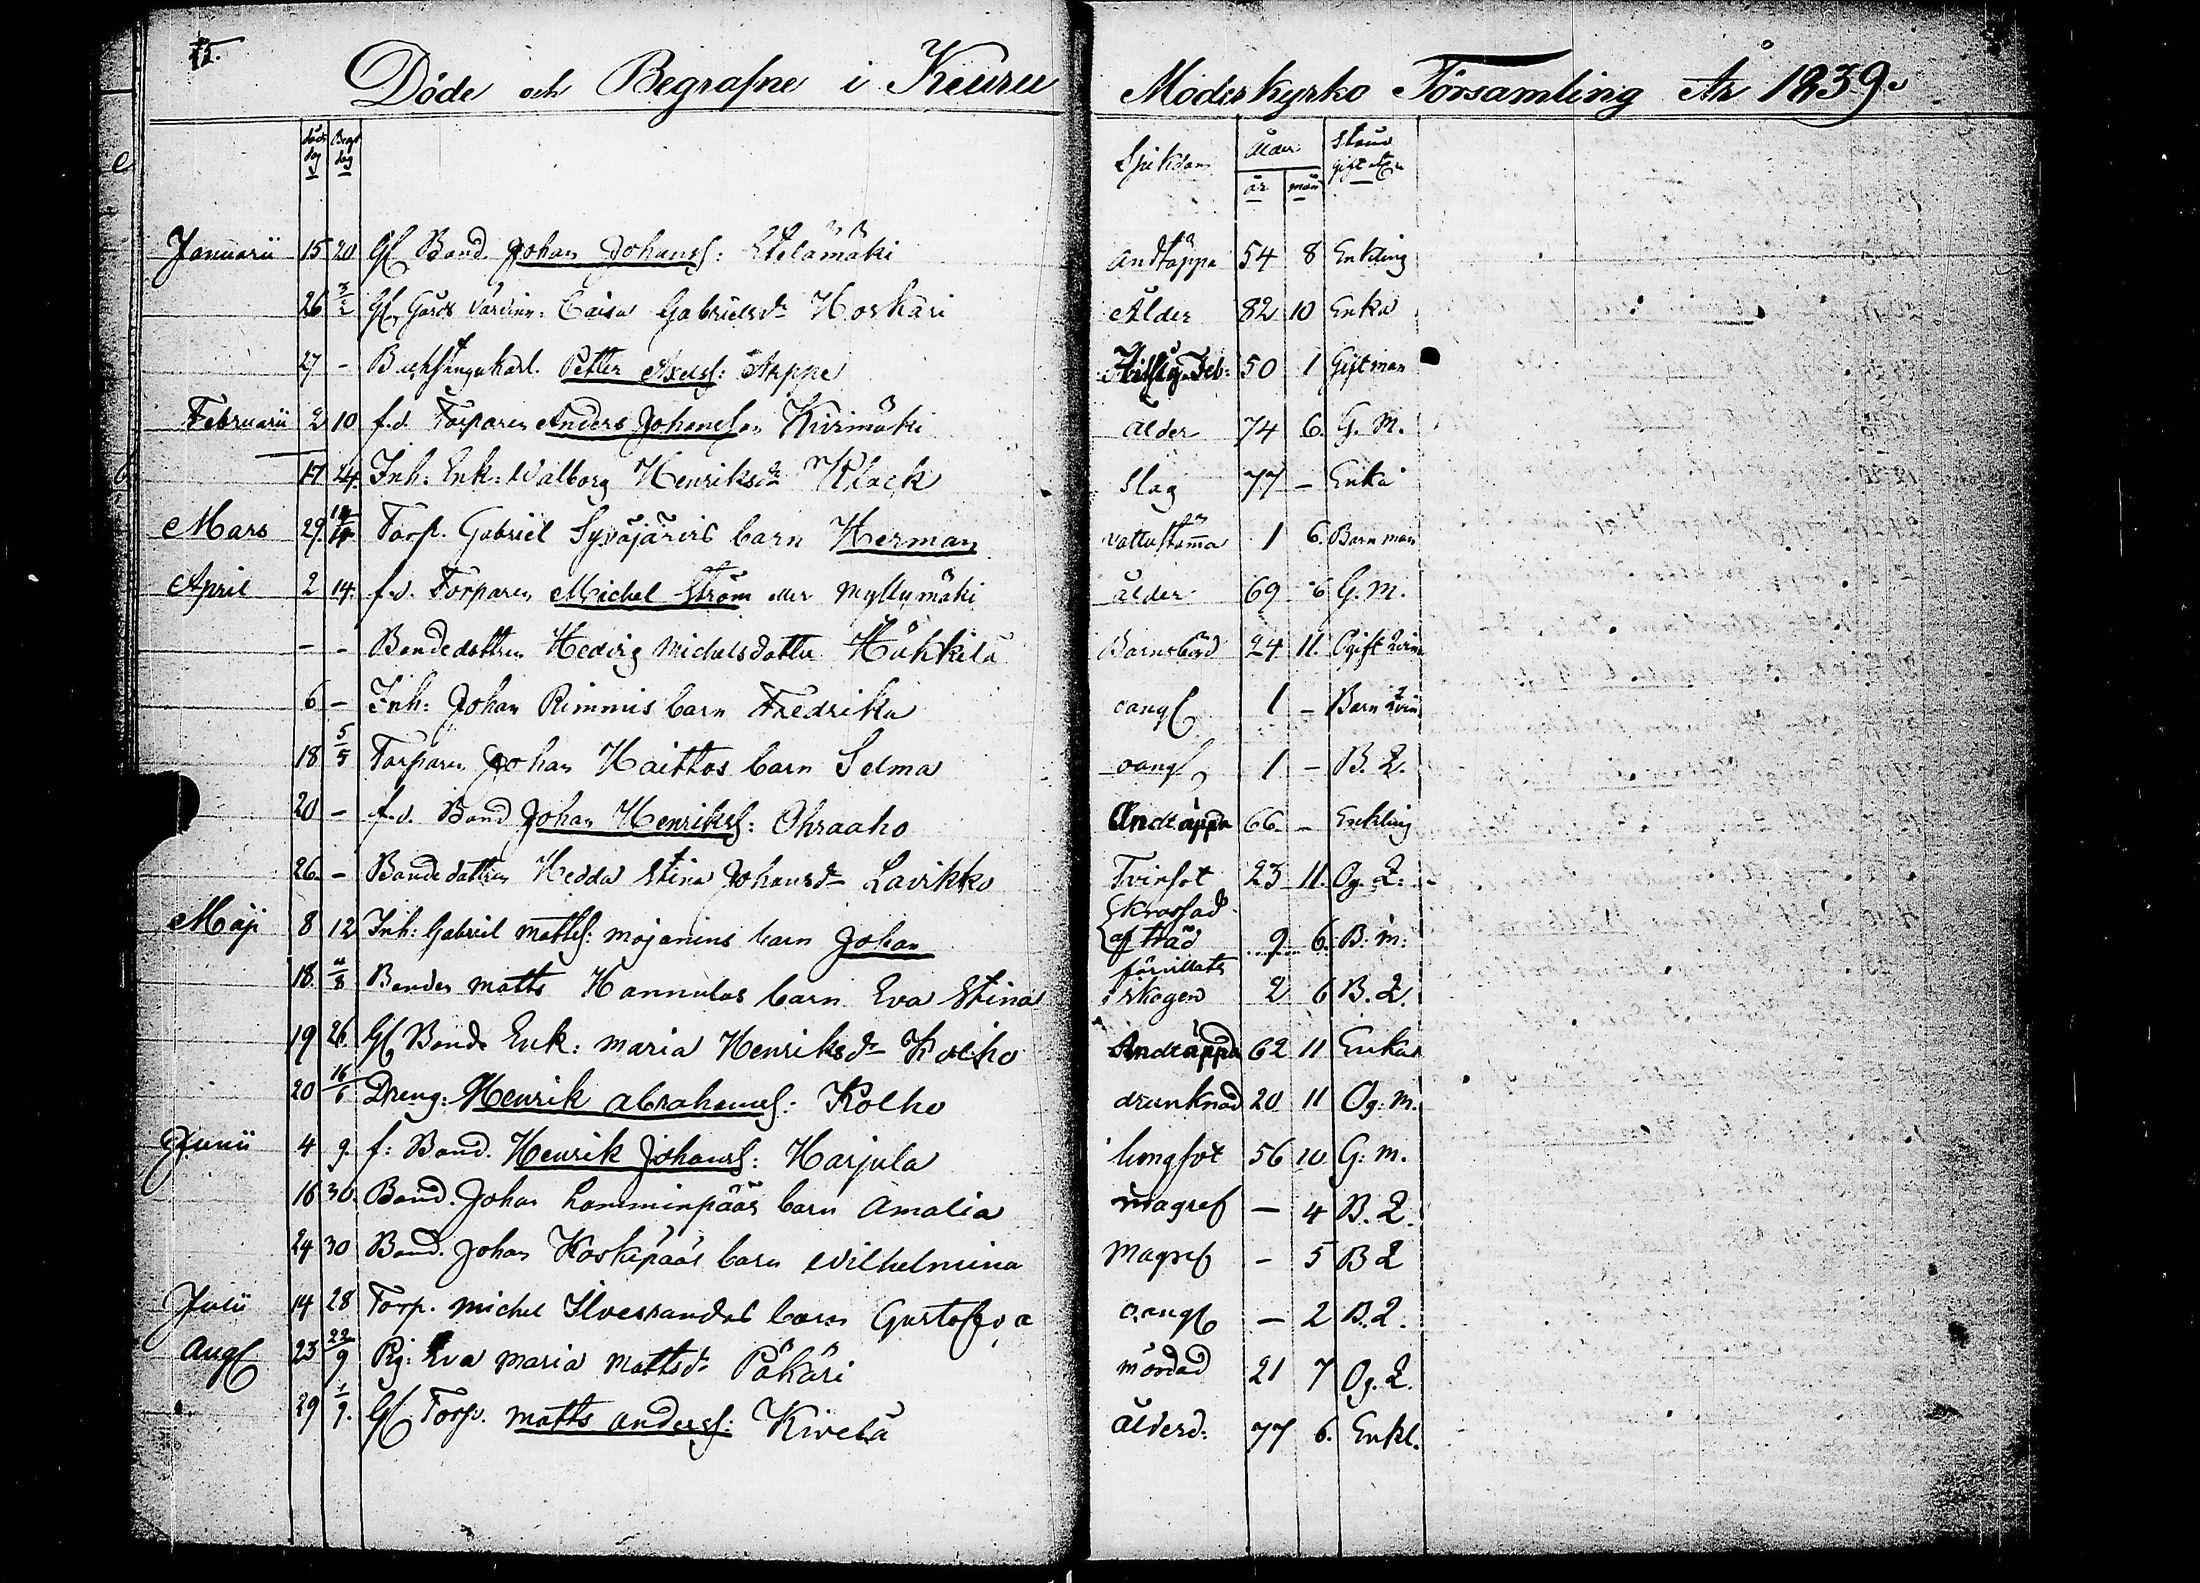 75.
Döde och Begrafne i Keuru Moderkyrko Församling År 1839.
döds dag Begr dag Sjukdom ålder år mån Stånd gift etc
Januarii 15 20 Gl Bond. Johan Johanss: Etelämäki Andtäppa 54 8 Enkling
26 3/2 Gl. Gårds värdinn: Caisa Gabrielsdr Hoskari Ålder 82 10 Enka
27 - Petter Axelss: Aappe Hitsig Feb: 50 1 Gift man
Februarii 2 10 f.d. Torparen Anders Johansson Kivimäki ålder 74 6. G. M.
17 24. Inh: Enk: Walborg Henriksdr Klack Slag 77 - Enka
Mars 29. 14/4 Torp. Gabriel Syväjärvis barn Herman 1 6. Barn man
April 2 14. f.d. Torparen Michel Ström eller Myllymäki ålder 69 6 G. M.
- - Bondedottren Hedvig Michelsdotter Häkkilä Barnsbörd 24 11. Ogift Qvin
6 - Inh: Johan Rimmis barn Fredrika oangf 1 - Barn Qvin
18 5/5 Torparen Johan Haittos barn Selma oangf 1 - B. Q.
20 - f.d. Bond Johan Henrikss: Ohraaho Andtäppa 66 - Enkling
26. - Bondedottren Hedda Stina Johansdr Lavikko Tvinsot 23 11. Og. Q.
Maji 8 12 Inh: Gabriel Mattss: Mojanens barn Johan krossad af träd 9 6. B: M:
18. /8 Bonden Matts Hannulas barn Eva Stina förvillats i skogen 2 6 B. Q.
19 26. Gl Bonde Enk: Maria Henriksdr Kolho Andtäppa 62 11 Enka
20 16/6 Dreng: Henrik Abrahamss: Kolho drunknad 20 11 Og: M.
Junii 4 9. f: Bond. Henrik Johanss: Harjula lungsot 56 10 G: M.
16 30. Bond. Johan Lamminpääs barn Amalia magref - 4 B. Q.
24 30 Bond. Johan Koskipääs barn Wilhelmina Magref - 5 B Q
Julii 14 28 Torp. Michel Ilvessandas barn Gustafva oangf - 2 B. Q.
Aug 23 22/9 Pig: Eva Maria Mattsdr Päkäri mördad 21 7 Og. Q.
29 1/9. Gl Torp. Matts Anderss: Kivelä ålderd: 77 6. Enkl.